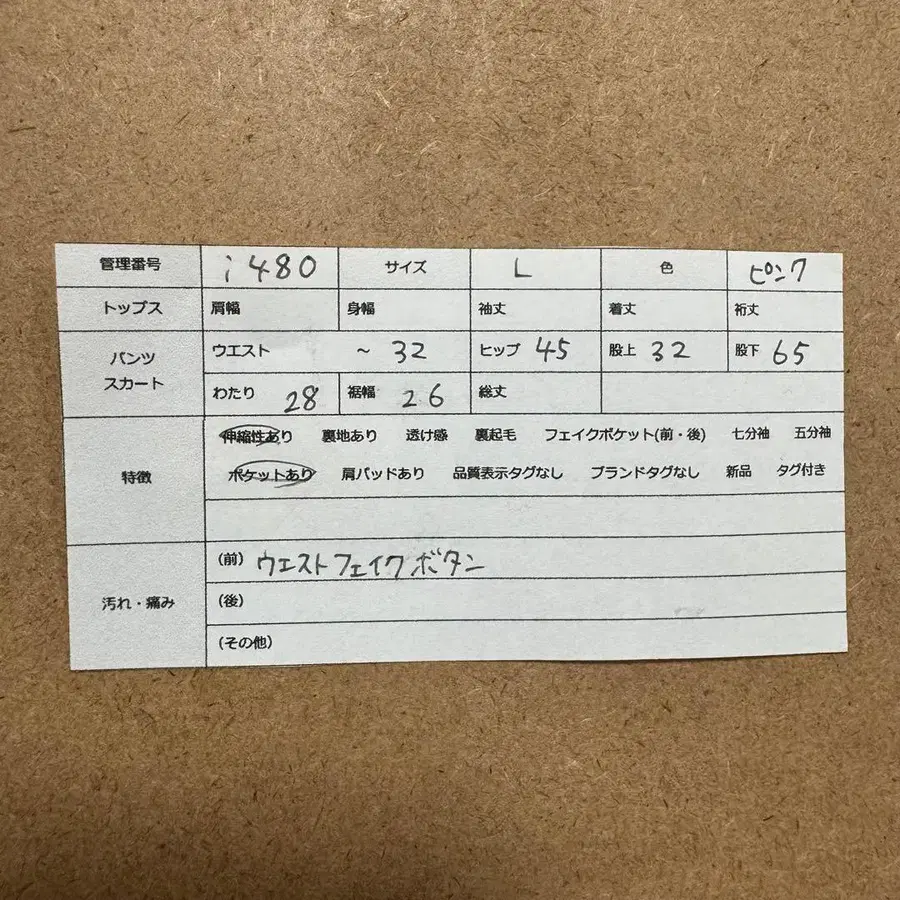 管理番号 i480 サイズ L 色 ピンク
トップス 肩幅 身幅 袖丈 着丈 裄丈
パンツ スカート ウエスト ~ 32 ヒップ 45 股上 32 股下 65
わたり 28 裾幅 26 総丈
特徴 伸縮性あり 裏地あり 透け感 裏起毛 フェイクポケット(前・後) 七分袖 五分袖
ポケットあり 肩パッドあり 品質表示タグなし ブランドタグなし 新品 タグ付き
汚れ・痛み (前) ウエストフェイクボタン
(後)
(その他)